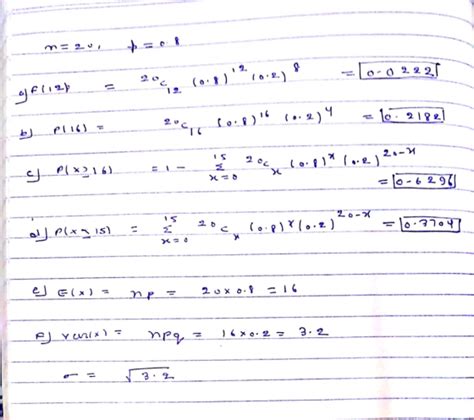 n=20, p=0.8
a) f(12) = 20C12 (0.8)^12 (0.2)^8 = 0.0222
b) P(16) = 20C16 (0.8)^16 (0.2)^4 = 0.2182
c) P(x≥16) = 1 - Σ 15 x=0 20Cx (0.8)^x (0.2)^20-x
= 0.6296
d) P(x≥15) = Σ 15 x=0 20Cx (0.8)^x (0.2)^20-x = 0.7704
e) E(x) = np = 20×0.8 = 16
F) var(x) = npq = 16×0.2 = 3.2
σ = √3.2